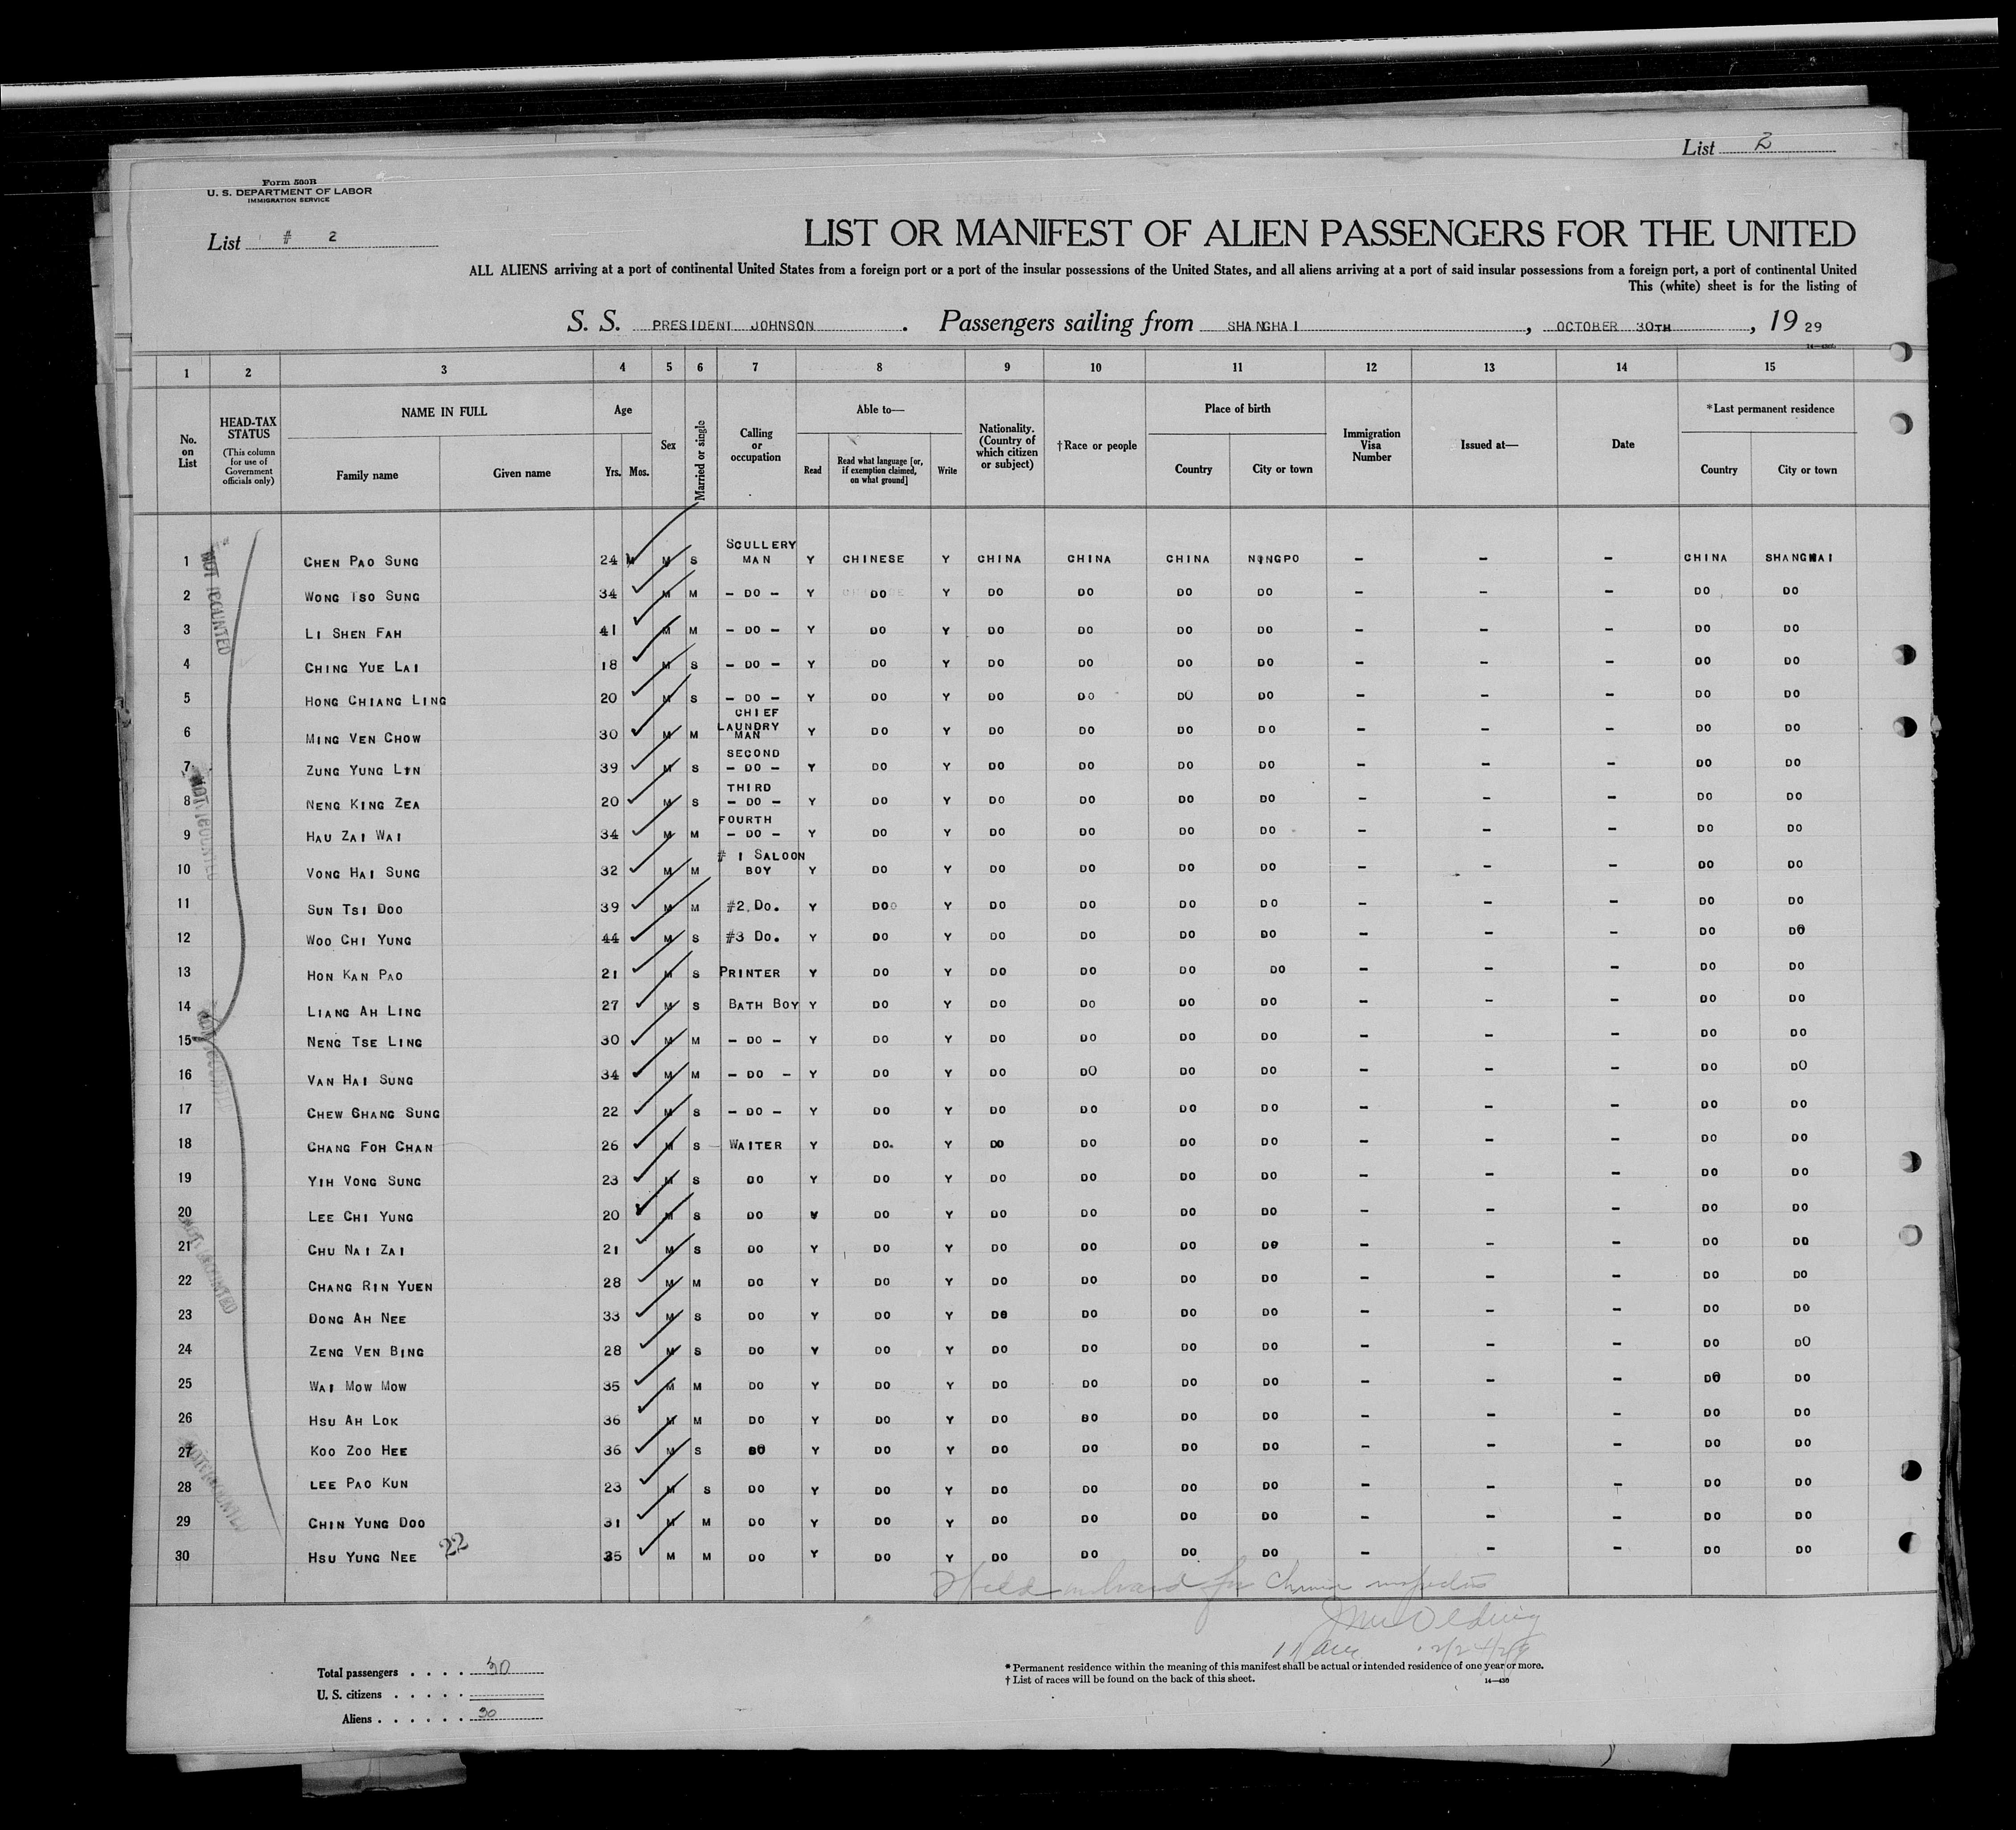 List 2
Form 500B
U. S. DEPARTMENT OF LABOR
IMMIGRATION SERVICE
List # 2
LIST OR MANIFEST OF ALIEN PASSENGERS FOR THE UNITED
ALL ALIENS arriving at a port of continental United States from a foreign port or a port of the insular possessions of the United States, and all aliens arriving at a port of said insular possessions from a foreign port, a port of continental United
This (white) sheet is for the listing of
S. S. PRESIDENT JOHNSON . Passengers sailing from SHANGHAI , OCTOBER 30TH , 19 29
1 2 3 4 5 6 7 8 9 10 11 12 13 14 15
No. on List
HEAD-TAX STATUS (This column for use of Government officials only)
NAME IN FULL
Family name Given name
Age
Yrs. Mos.
Sex
Married or single
Calling or occupation
Able to—
Read
Read what language [or, if exemption claimed, on what ground]
Write
Nationality. (Country of which citizen or subject)
† Race or people
Place of birth
Country City or town
Immigration Visa Number
Issued at—
Date
* Last permanent residence
Country City or town
1 CHEN PAO SUNG 24 M M S SCULLERY MAN Y CHINESE Y CHINA CHINA CHINA NINGPO – – – CHINA SHANGHAI
2 WONG TSO SUNG 34 M M – DO – Y DO Y DO DO DO DO – – – DO DO
3 LI SHEN FAH 41 M M – DO – Y DO Y DO DO DO DO – – – DO DO
4 CHING YUE LAI 18 M S – DO – Y DO Y DO DO DO DO – – – DO DO
5 HONG CHIANG LING 20 M S – DO – Y DO Y DO DO DO DO – – – DO DO
6 MING VEN CHOW 30 M M CHIEF LAUNDRY MAN Y DO Y DO DO DO DO – – – DO DO
7 ZUNG YUNG LIN 39 M S SECOND – DO – Y DO Y DO DO DO DO – – – DO DO
8 NENG KING ZEA 20 M S THIRD – DO – Y DO Y DO DO DO DO – – – DO DO
9 HAU ZAI WAI 34 M M FOURTH – DO – Y DO Y DO DO DO DO – – – DO DO
10 VONG HAI SUNG 32 M M # 1 SALOON BOY Y DO Y DO DO DO DO – – – DO DO
11 SUN TSI DOO 39 M M #2 DO. Y DO Y DO DO DO DO – – – DO DO
12 WOO CHI YUNG 44 M S #3 DO. Y DO Y DO DO DO DO – – – DO DO
13 HON KAN PAO 21 M S PRINTER Y DO Y DO DO DO DO – – – DO DO
14 LIANG AH LING 27 M S BATH BOY Y DO Y DO DO DO DO – – – DO DO
15 NENG TSE LING 30 M M – DO – Y DO Y DO DO DO DO – – – DO DO
16 VAN HAI SUNG 34 M M – DO – Y DO Y DO DO DO DO – – – DO DO
17 CHEW GHANG SUNG 22 M S – DO – Y DO Y DO DO DO DO – – – DO DO
18 CHANG FOH CHAN 26 M S WAITER Y DO. Y DO DO DO DO – – – DO DO
19 YIH VONG SUNG 23 M S DO Y DO Y DO DO DO DO – – – DO DO
20 LEE CHI YUNG 20 M S DO Y DO Y DO DO DO DO – – – DO DO
21 CHU NAI ZAI 21 M S DO Y DO Y DO DO DO DO – – – DO DO
22 CHANG RIN YUEN 28 M M DO Y DO Y DO DO DO DO – – – DO DO
23 DONG AH NEE 33 M S DO Y DO Y DO DO DO DO – – – DO DO
24 ZENG VEN BING 28 M S DO Y DO Y DO DO DO DO – – – DO DO
25 WAI MOW MOW 35 M M DO Y DO Y DO DO DO DO – – – DO DO
26 HSU AH LOK 36 M M DO Y DO Y DO DO DO DO – – – DO DO
27 KOO ZOO HEE 36 M S DO Y DO Y DO DO DO DO – – – DO DO
28 LEE PAO KUN 23 M S DO Y DO Y DO DO DO DO – – – DO DO
29 CHIN YUNG DOO 31 M M DO Y DO Y DO DO DO DO – – – DO DO
30 HSU YUNG NEE 22 35 M M DO Y DO Y DO DO DO DO – – – DO DO
Held onboard for Chinese inspection
Total passengers . . . . 30
U. S. citizens . . . . .
Aliens . . . . . . 30
* Permanent residence within the meaning of this manifest shall be actual or intended residence of one year or more.
† List of races will be found on the back of this sheet.
14—430